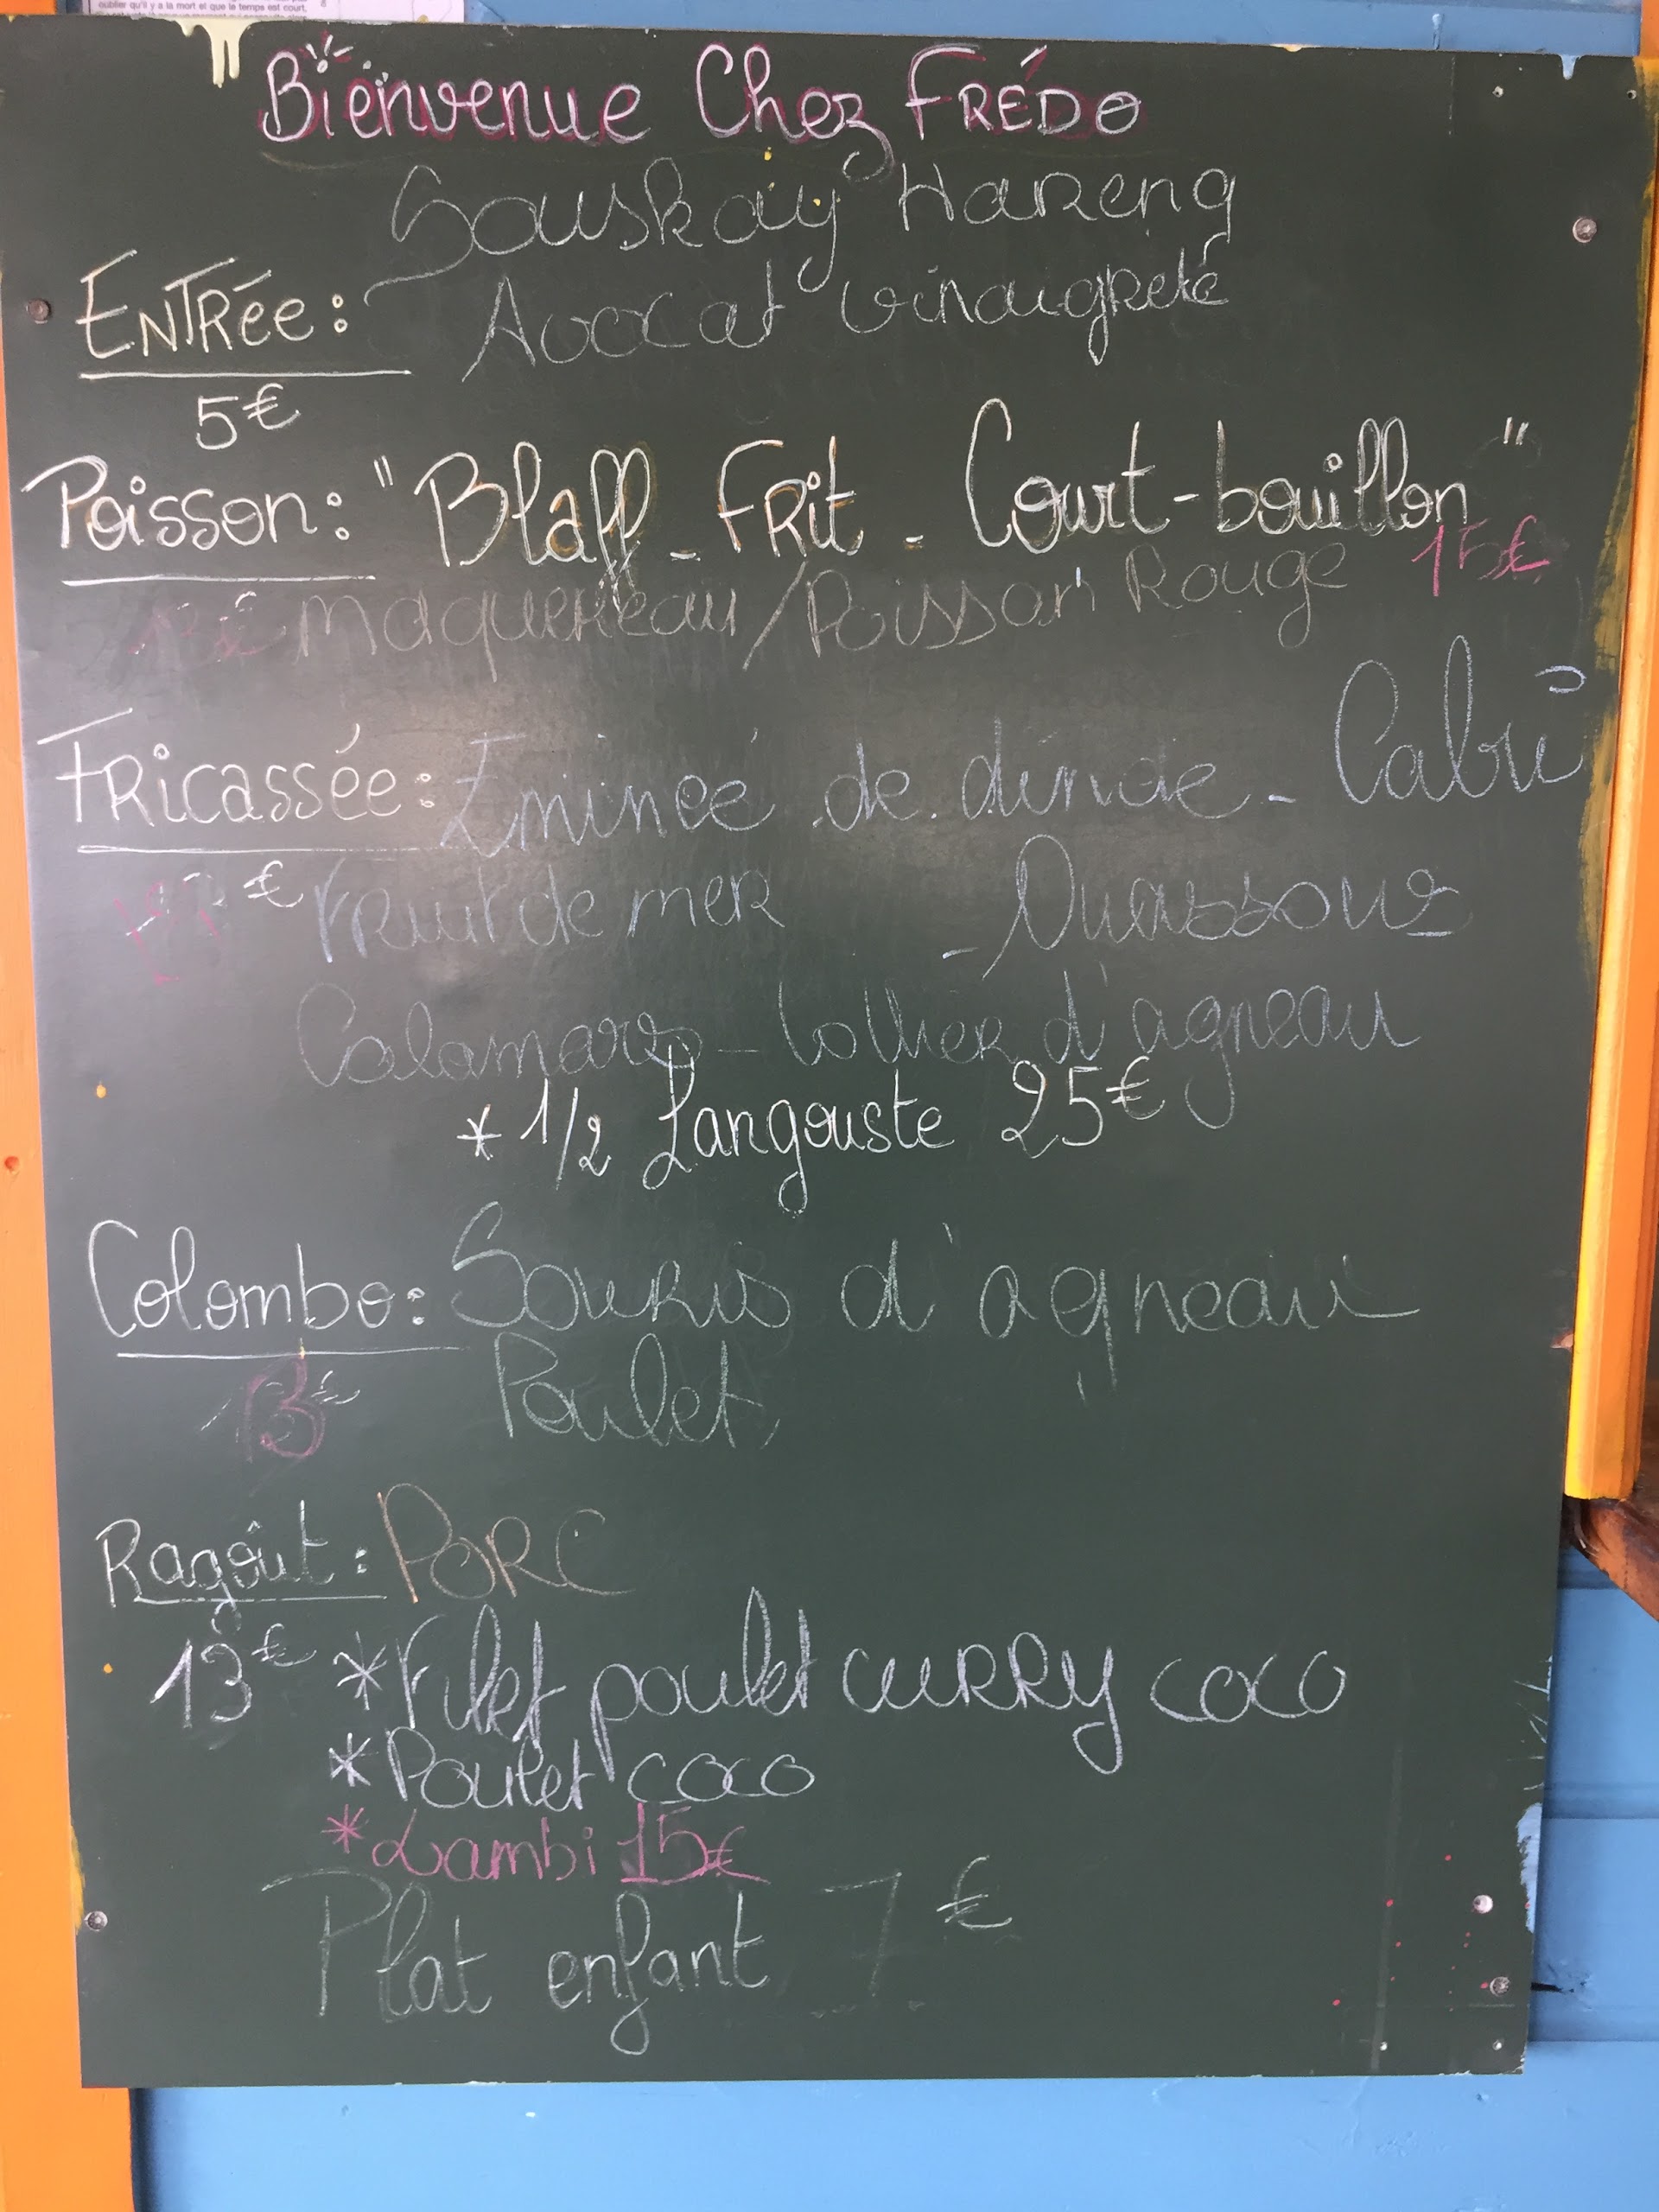 oublier qu'il y a la mort et que le temps est court,
Bienvenue Chez FRÉDO
Souskay Hareng
ENTRÉe : Avocat vinaigreté
5€
Poisson : "Blaff - FRit - Court-bouillon"
15€
Maquereau / Poisson Rouge
FRicassée : Émincé de dinde - Cabri
€ Fruit de mer - Ouassous
Calamars - Collier d'agneau
* 1/2 Langouste 25€
Colombo : Souris d'agneau
13€ Poulet
Ragoût : PORC
13€ * Filet poulet cuRRy coco
* Poulet coco
* Lambi 15€
Plat enfant 7€